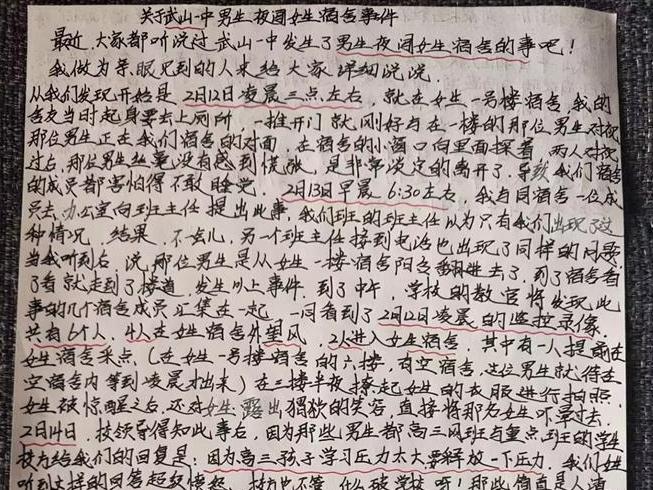 关于武山一中男生夜闯女生宿舍事件
最近,大家都听说过武山一中发生了男生夜闯女生宿舍的事吧!
我做为亲眼见到的人来给大家详细说说.
从我们发现开始是2月12日凌晨三点左右,就在女生一号楼宿舍,我的
舍友当时起身要去上厕所,一推开门就刚好与在一楼的那位男生对视
那位男生正在我们宿舍的对面,在宿舍的小窗口向里面探着,两人对视
过后,那位男生丝毫没有感到慌张,是非常淡定的离开了.导致我们宿舍
的成员都害怕得不敢睡觉. 2月13日早晨6:30左右,我与同宿舍一位成
员去办公室向班主任提出此事,我们班的班主任以为只有我们出现了这
种情况,结果,不一会儿,另一个班主任接到电话也出现了同样的问题.
当我听到后,说,那位男生是从女生一楼宿舍阳台翻进去了,到了宿舍看
了看就走到了楼道,发生以上事件.到了中午,学校的教官将发现此
事的几个宿舍成员汇集在一起,一同看到了2月12日凌晨的监控录像
共有6个人,4人在女生宿舍外望风,2人进入女生宿舍.其中有一人提前在
女生宿舍采点(在女生一号楼宿舍的六楼,有空宿舍,这位男生就待在
空宿舍内等到凌晨才出来)在三楼半夜撩起女生的衣服进行拍照.
女生被惊醒之后,还对女生露出猥琐的笑容,直接将那名女生吓晕过去.
2月14日,校领导得知此事后,因为那些男生都高三风班与重点班的学生
校方给我们的回复是:因为高三孩子学习压力太大要解放一下压力.我们女生
听到这样的回答超级愤怒,